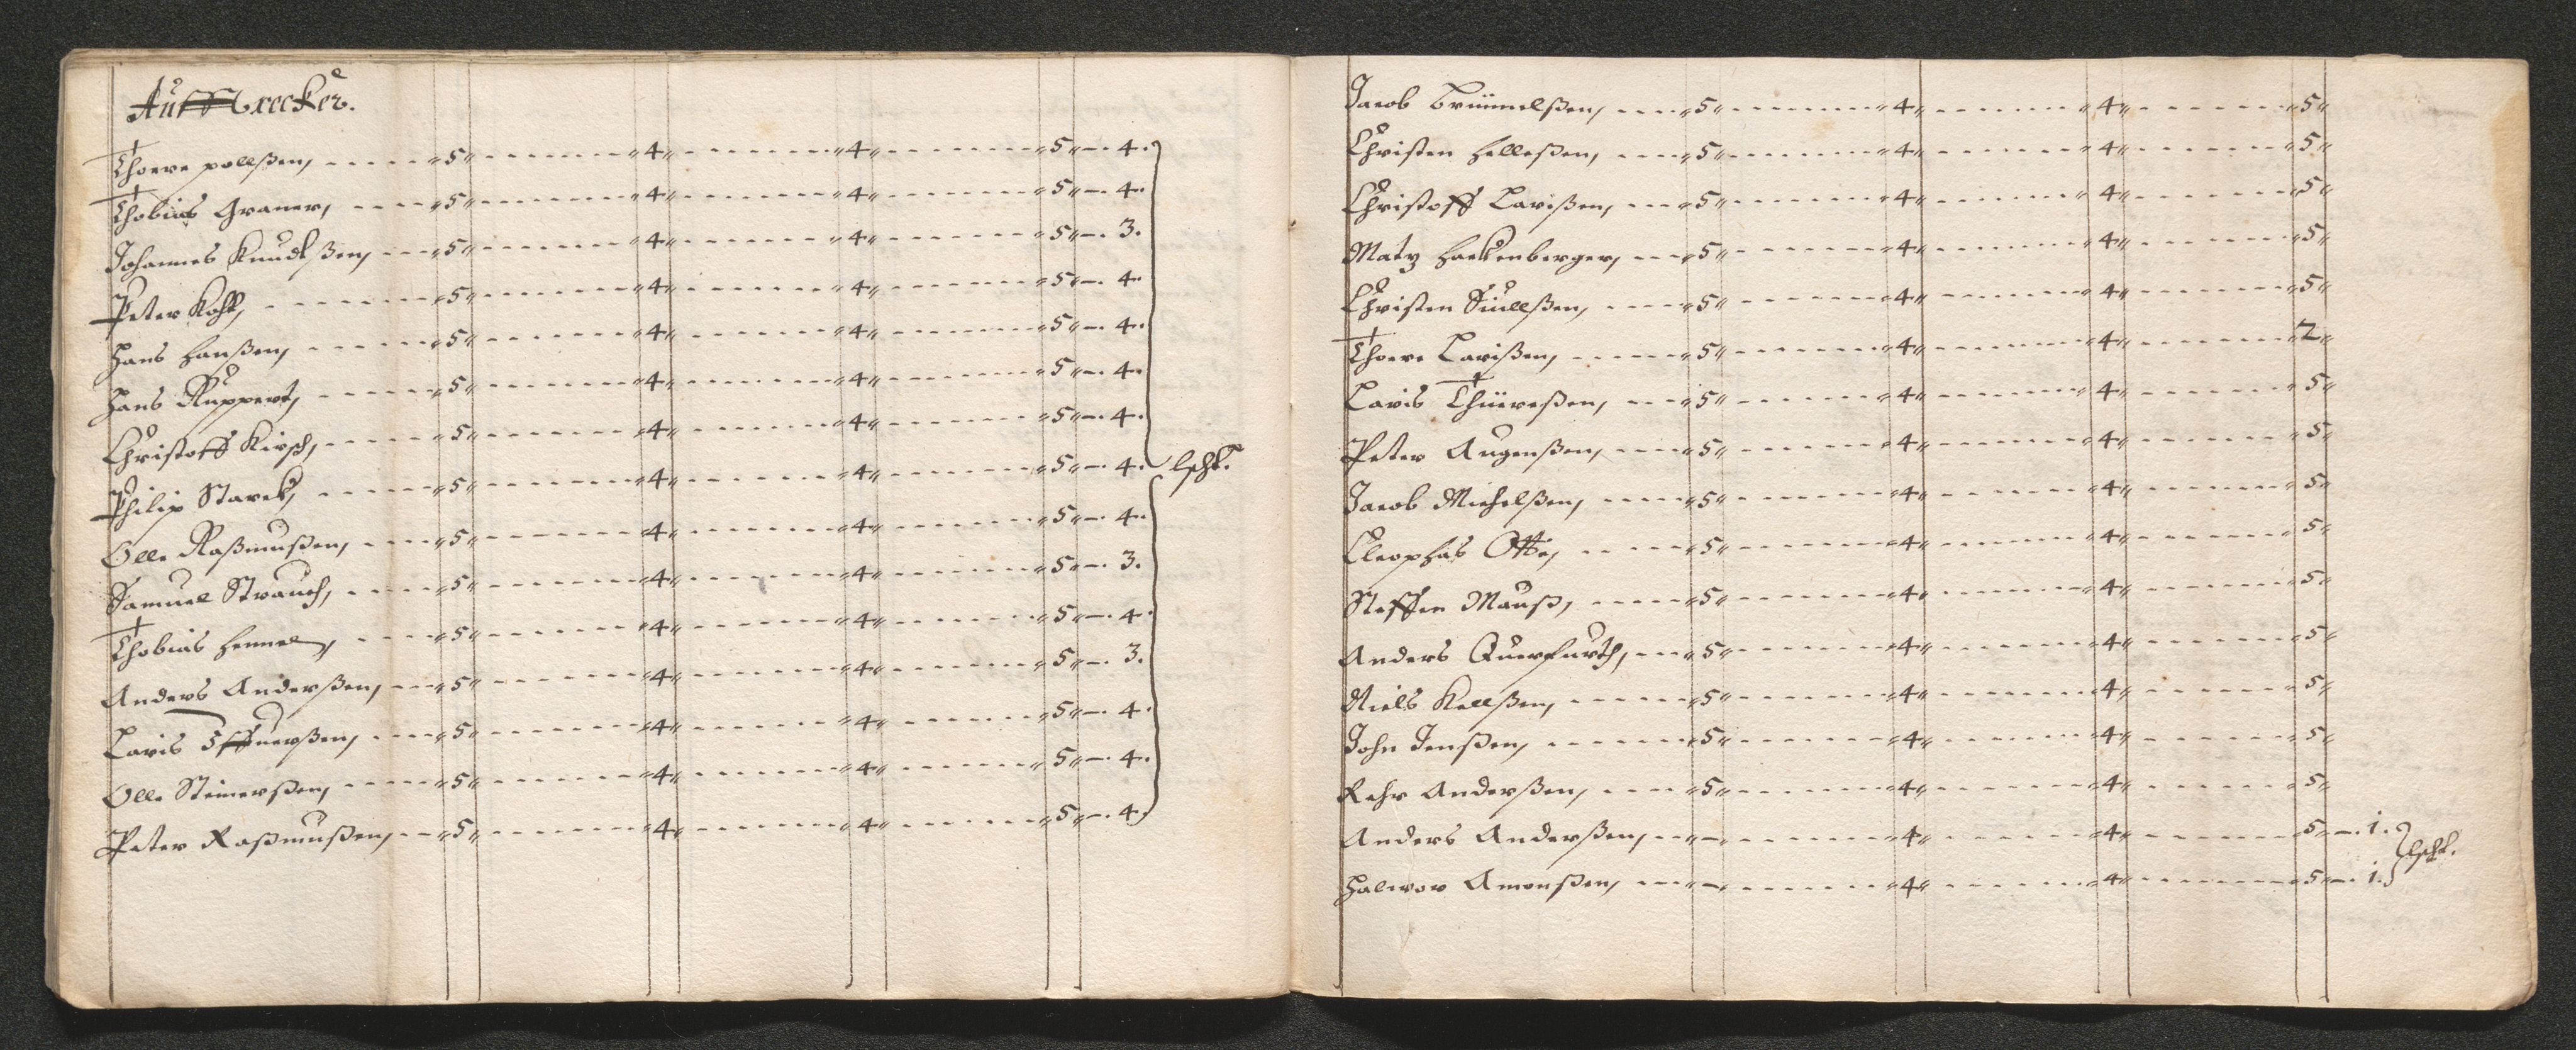 Auffstrecker.
Thorre pollßen, - - - - - „5„ - - - - - - - „4„ - - - - - - - „4„ - - - - - - - „5„ -. 4.
Thobias Graner, - - - - „5„ - - - - - - - „4„ - - - - - - - „4„ - - - - - - - „5„ -. 4.
Johannes Knudtßen, - - - „5„ - - - - - - - „4„ - - - - - - - „4„ - - - - - - - „5„ -. 3.
Peter Kohl, - - - - - - - „5„ - - - - - - - „4„ - - - - - - - „4„ - - - - - - - „5„ -. 4.
Hans Hanßen, - - - - - - „5„ - - - - - - - „4„ - - - - - - - „4„ - - - - - - - „5„ -. 4.
Hans Ruppert, - - - - - „5„ - - - - - - - „4„ - - - - - - - „4„ - - - - - - - „5„ -. 4.
Christoff Kirsch, - - - - - „5„ - - - - - - - „4„ - - - - - - - „4„ - - - - - - - „5„ -. 4.
Philip Starck, - - - - - - „5„ - - - - - - - „4„ - - - - - - - „4„ - - - - - - - „5„ -. 4. lßht.
Olle Raßmußen, - - - - „5„ - - - - - - - „4„ - - - - - - - „4„ - - - - - - - „5„ -. 4.
Samuel Strauch, - - - - „5„ - - - - - - - „4„ - - - - - - - „4„ - - - - - - - „5„ -. 3.
Thobias Hennel, - - - - „5„ - - - - - - - „4„ - - - - - - - „4„ - - - - - - - „5„ -. 4.
Anders Anderßen, - - - „5„ - - - - - - - „4„ - - - - - - - „4„ - - - - - - - „5„ -. 3.
Laris Iffuerßen, - - - - „5„ - - - - - - - „4„ - - - - - - - „4„ - - - - - - - „5„ -. 4.
Olle Steinerßen, - - - - - „5„ - - - - - - - „4„ - - - - - - - „4„ - - - - - - - „5„ -. 4.
Peter Raßmußen, - - „5„ - - - - - - - „4„ - - - - - - - „4„ - - - - - - - „5„ -. 4.
Jacob Brummelßen, - - - - „5„ - - - - - - - „4„ - - - - - - - „4„ - - - - - - - „5„
Christen Helleßen, - - - - „5„ - - - - - - - „4„ - - - - - - - „4„ - - - - - - - „5„
Christoff Larißen, - - - - „5„ - - - - - - - „4„ - - - - - - - „4„ - - - - - - - „5„
Matz Hackenberger, - - - „5„ - - - - - - - „4„ - - - - - - - „4„ - - - - - - - „5„
Christen Siullßen, - - - - - „5„ - - - - - - - „4„ - - - - - - - „4„ - - - - - - - „5„
Thorre Larißen, - - - - - - „5„ - - - - - - - „4„ - - - - - - - „4„ - - - - - - - „2„
Laris Thüereßen, - - - - „5„ - - - - - - - „4„ - - - - - - - „4„ - - - - - - - „5„
Peter Augenßen, - - - - „5„ - - - - - - - „4„ - - - - - - - „4„ - - - - - - - „5„
Jacob Michelßen, - - - - - „5„ - - - - - - - „4„ - - - - - - - „4„ - - - - - - - „5„
Cleophas Otte, - - - - - „5„ - - - - - - - „4„ - - - - - - - „4„ - - - - - - - „5„
Steffen Mauß, - - - - - „5„ - - - - - - - „4„ - - - - - - - „4„ - - - - - - - „5„
Anders Querfurth, - - - „5„ - - - - - - - „4„ - - - - - - - „4„ - - - - - - - „5„
Niels Kellßen, - - - - - - „5„ - - - - - - - „4„ - - - - - - - „4„ - - - - - - - „5„
John Jenßen, - - - - - - - „5„ - - - - - - - „4„ - - - - - - - „4„ - - - - - - - „5„
Rehr Anderßen, - - - - - „5„ - - - - - - - „4„ - - - - - - - „4„ - - - - - - - „5„
Anders Anderßen, - - „-„ - - - - - - - „4„ - - - - - - - „4„ - - - - - - - „5„ -. 1.
Halwor Amonßen, - - - „-„ - - - - - - - „4„ - - - - - - - „4„ - - - - - - - „5„ -. 1. lßht.